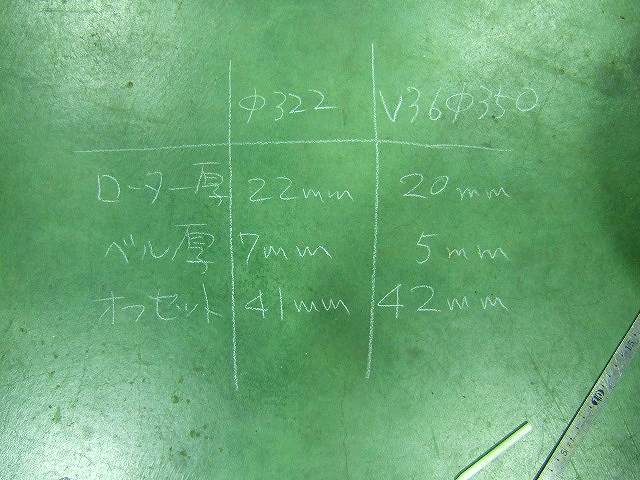 φ322 V36φ350
ローター厚 22mm 20mm
ベル厚 7mm 5mm
オフセット 41mm 42mm